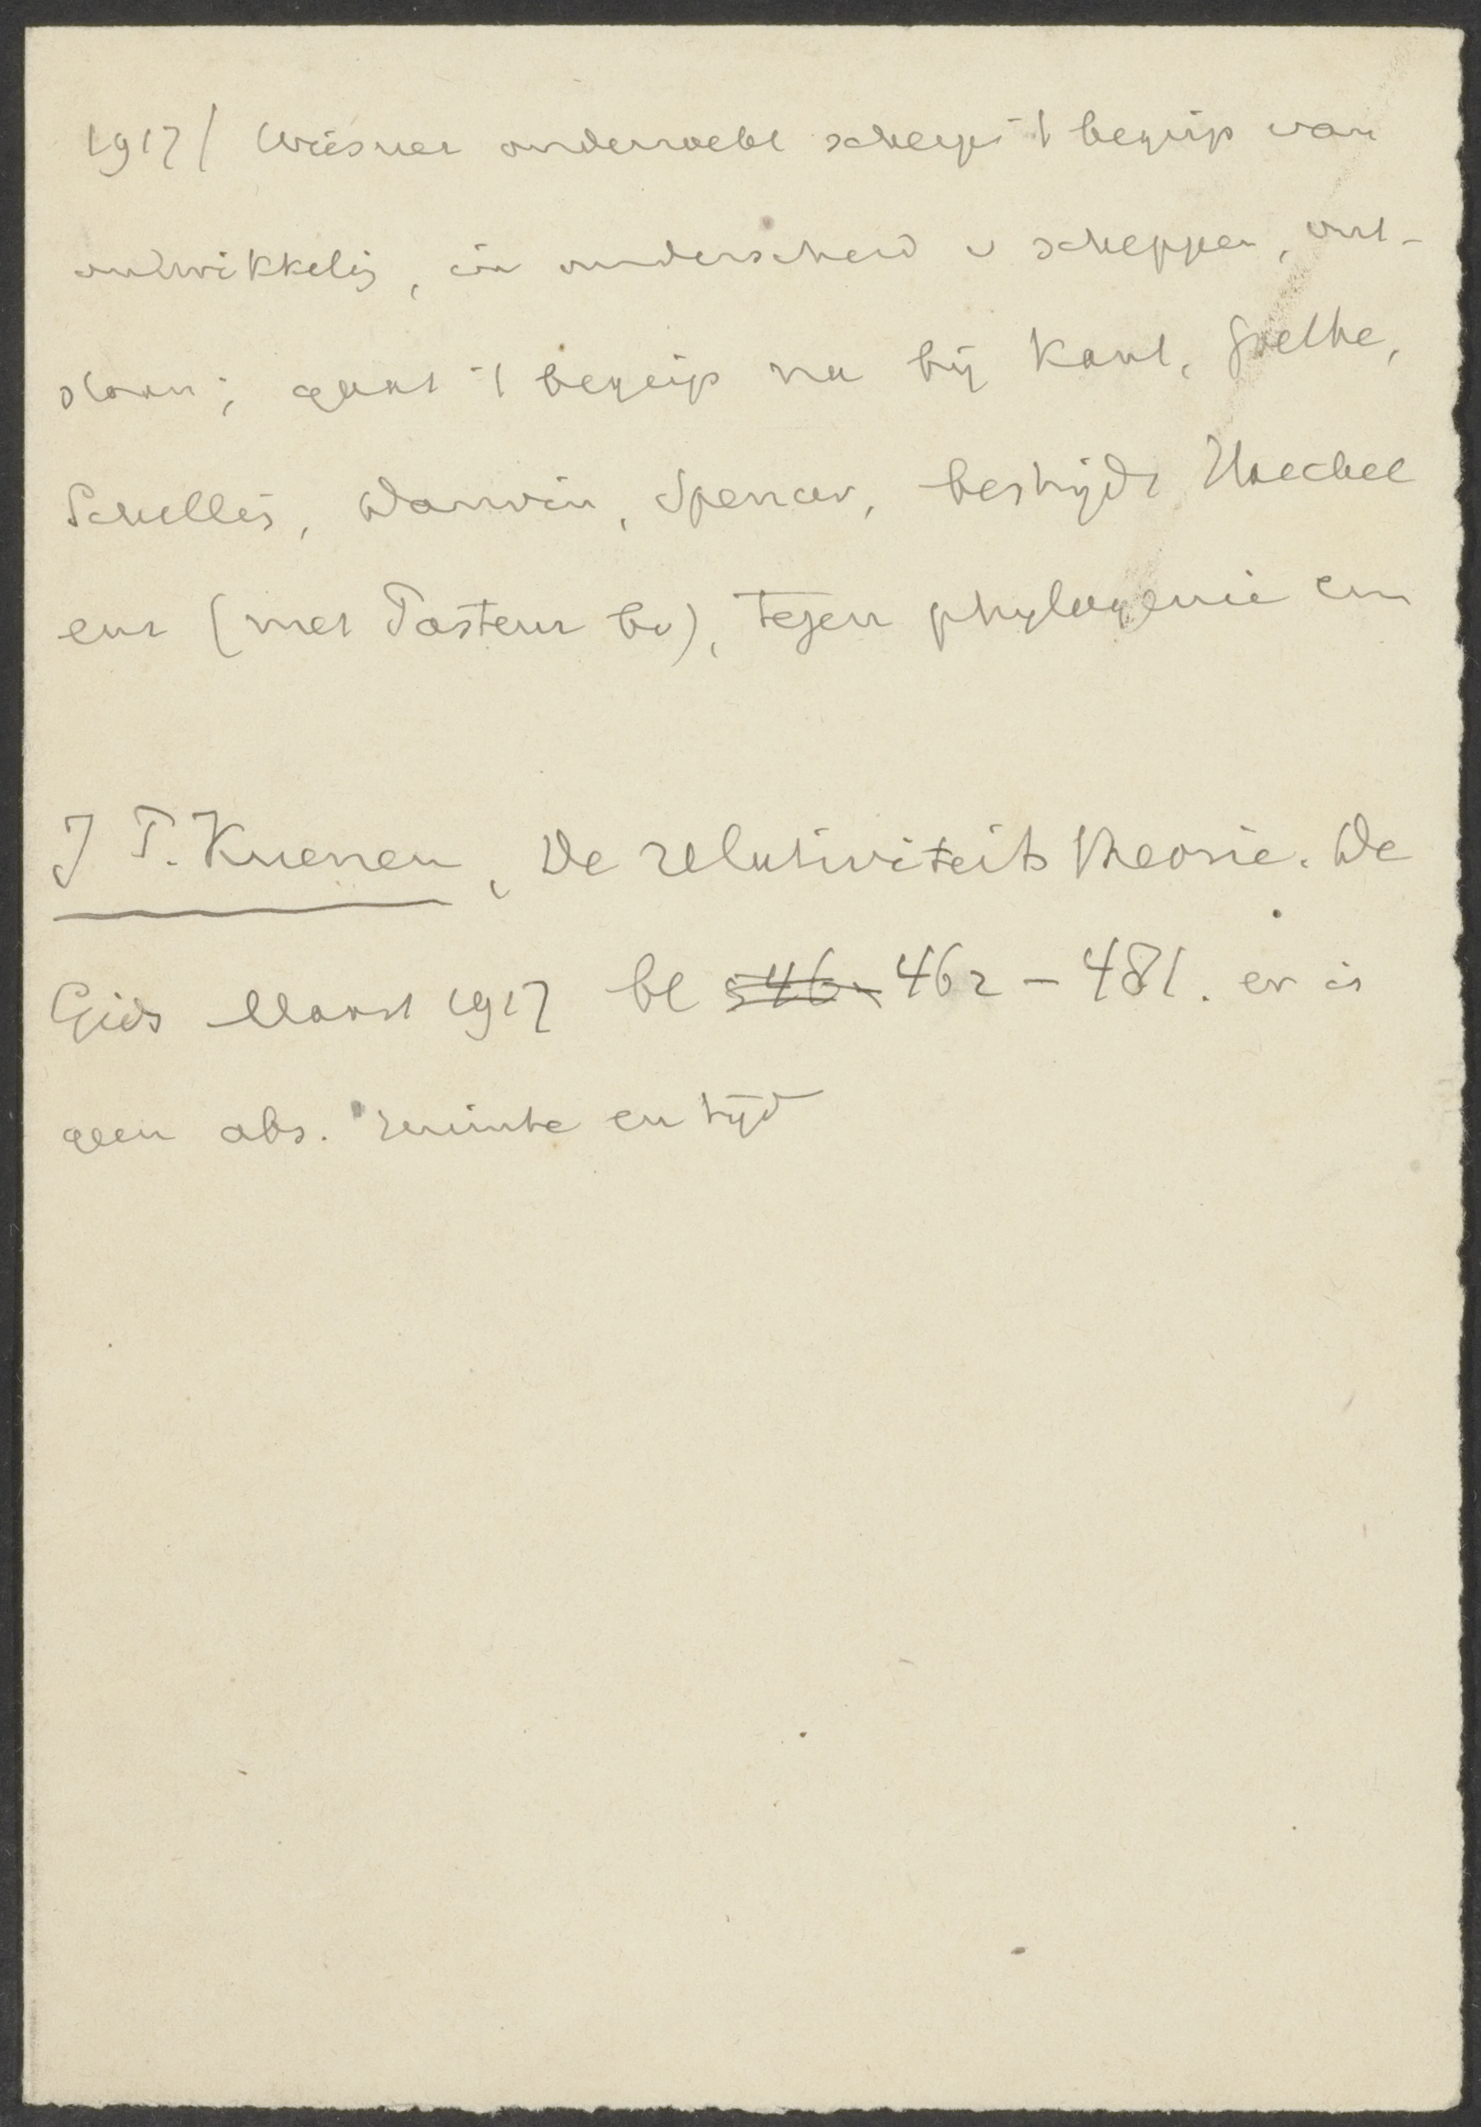 1917/ Wiesner onderzoekt scherp 't begrip van
ontwikkelig, in onderscheid v scheppen, ont-
staan; gaat 't begrip na bij Kant, Goethe,
Schellig, Darwin, Spencer, bestrijdt Haeckel
enz (met Pasteur bv), tegen phylogenie enz
J P. Kuenen, De relativiteitstheorie. De
Gids Maart 1917 bl 462 - 481. er is
geen abs. ruimte en tijd